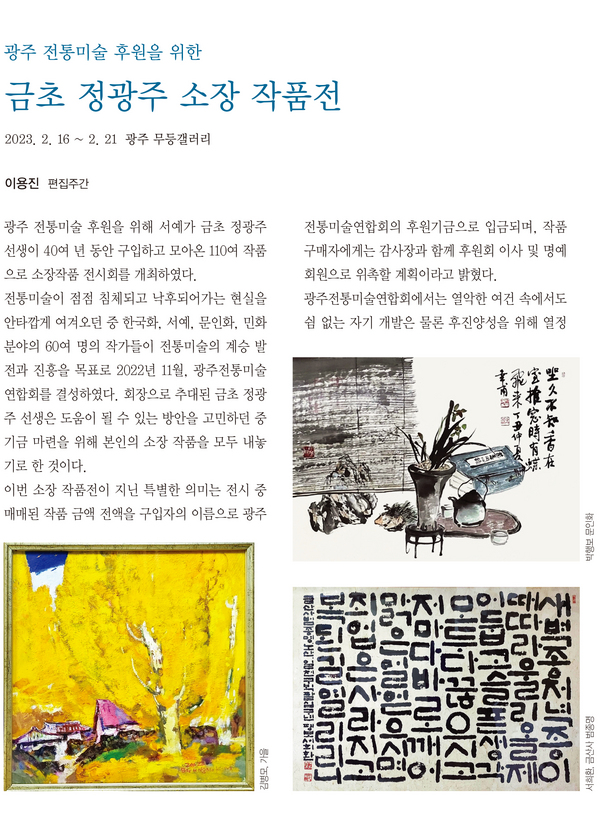 광주 전통미술 후원을 위한
금초 정광주 소장 작품전
2023. 2. 16 ~ 2. 21 광주 무등갤러리
이용진 편집주간
광주 전통미술 후원을 위해 서예가 금초 정광주
선생이 40여 년 동안 구입하고 모아온 110여 작품
으로 소장작품 전시회를 개최하였다.
전통미술이 점점 침체되고 낙후되어가는 현실을
안타깝게 여겨오던 중 한국화, 서예, 문인화, 민화
분야의 60여 명의 작가들이 전통미술의 계승 발
전과 진흥을 목표로 2022년 11월, 광주전통미술
연합회를 결성하였다. 회장으로 추대된 금초 정광
주 선생은 도움이 될 수 있는 방안을 고민하던 중
기금 마련을 위해 본인의 소장 작품을 모두 내놓
기로 한 것이다.
이번 소장 작품전이 지닌 특별한 의미는 전시 중
매매된 작품 금액 전액을 구입자의 이름으로 광주
전통미술연합회의 후원기금으로 입금되며, 작품
구매자에게는 감사장과 함께 후원회 이사 및 명예
회원으로 위촉할 계획이라고 밝혔다.
광주전통미술연합회에서는 열악한 여건 속에서도
쉼 없는 자기 개발은 물론 후진양성을 위해 열정
坐久不知香在
室推窓時有蝶
飛來丁丑仲夏
박행보 문인화
김병모, 가을
새벽종치면종이
따따라울리울제
이둡고슬픈생각
모르다끊어지고
저마다바로깨어
맑은얼은
죄입은사라지고
서희환, 금산사 범종명